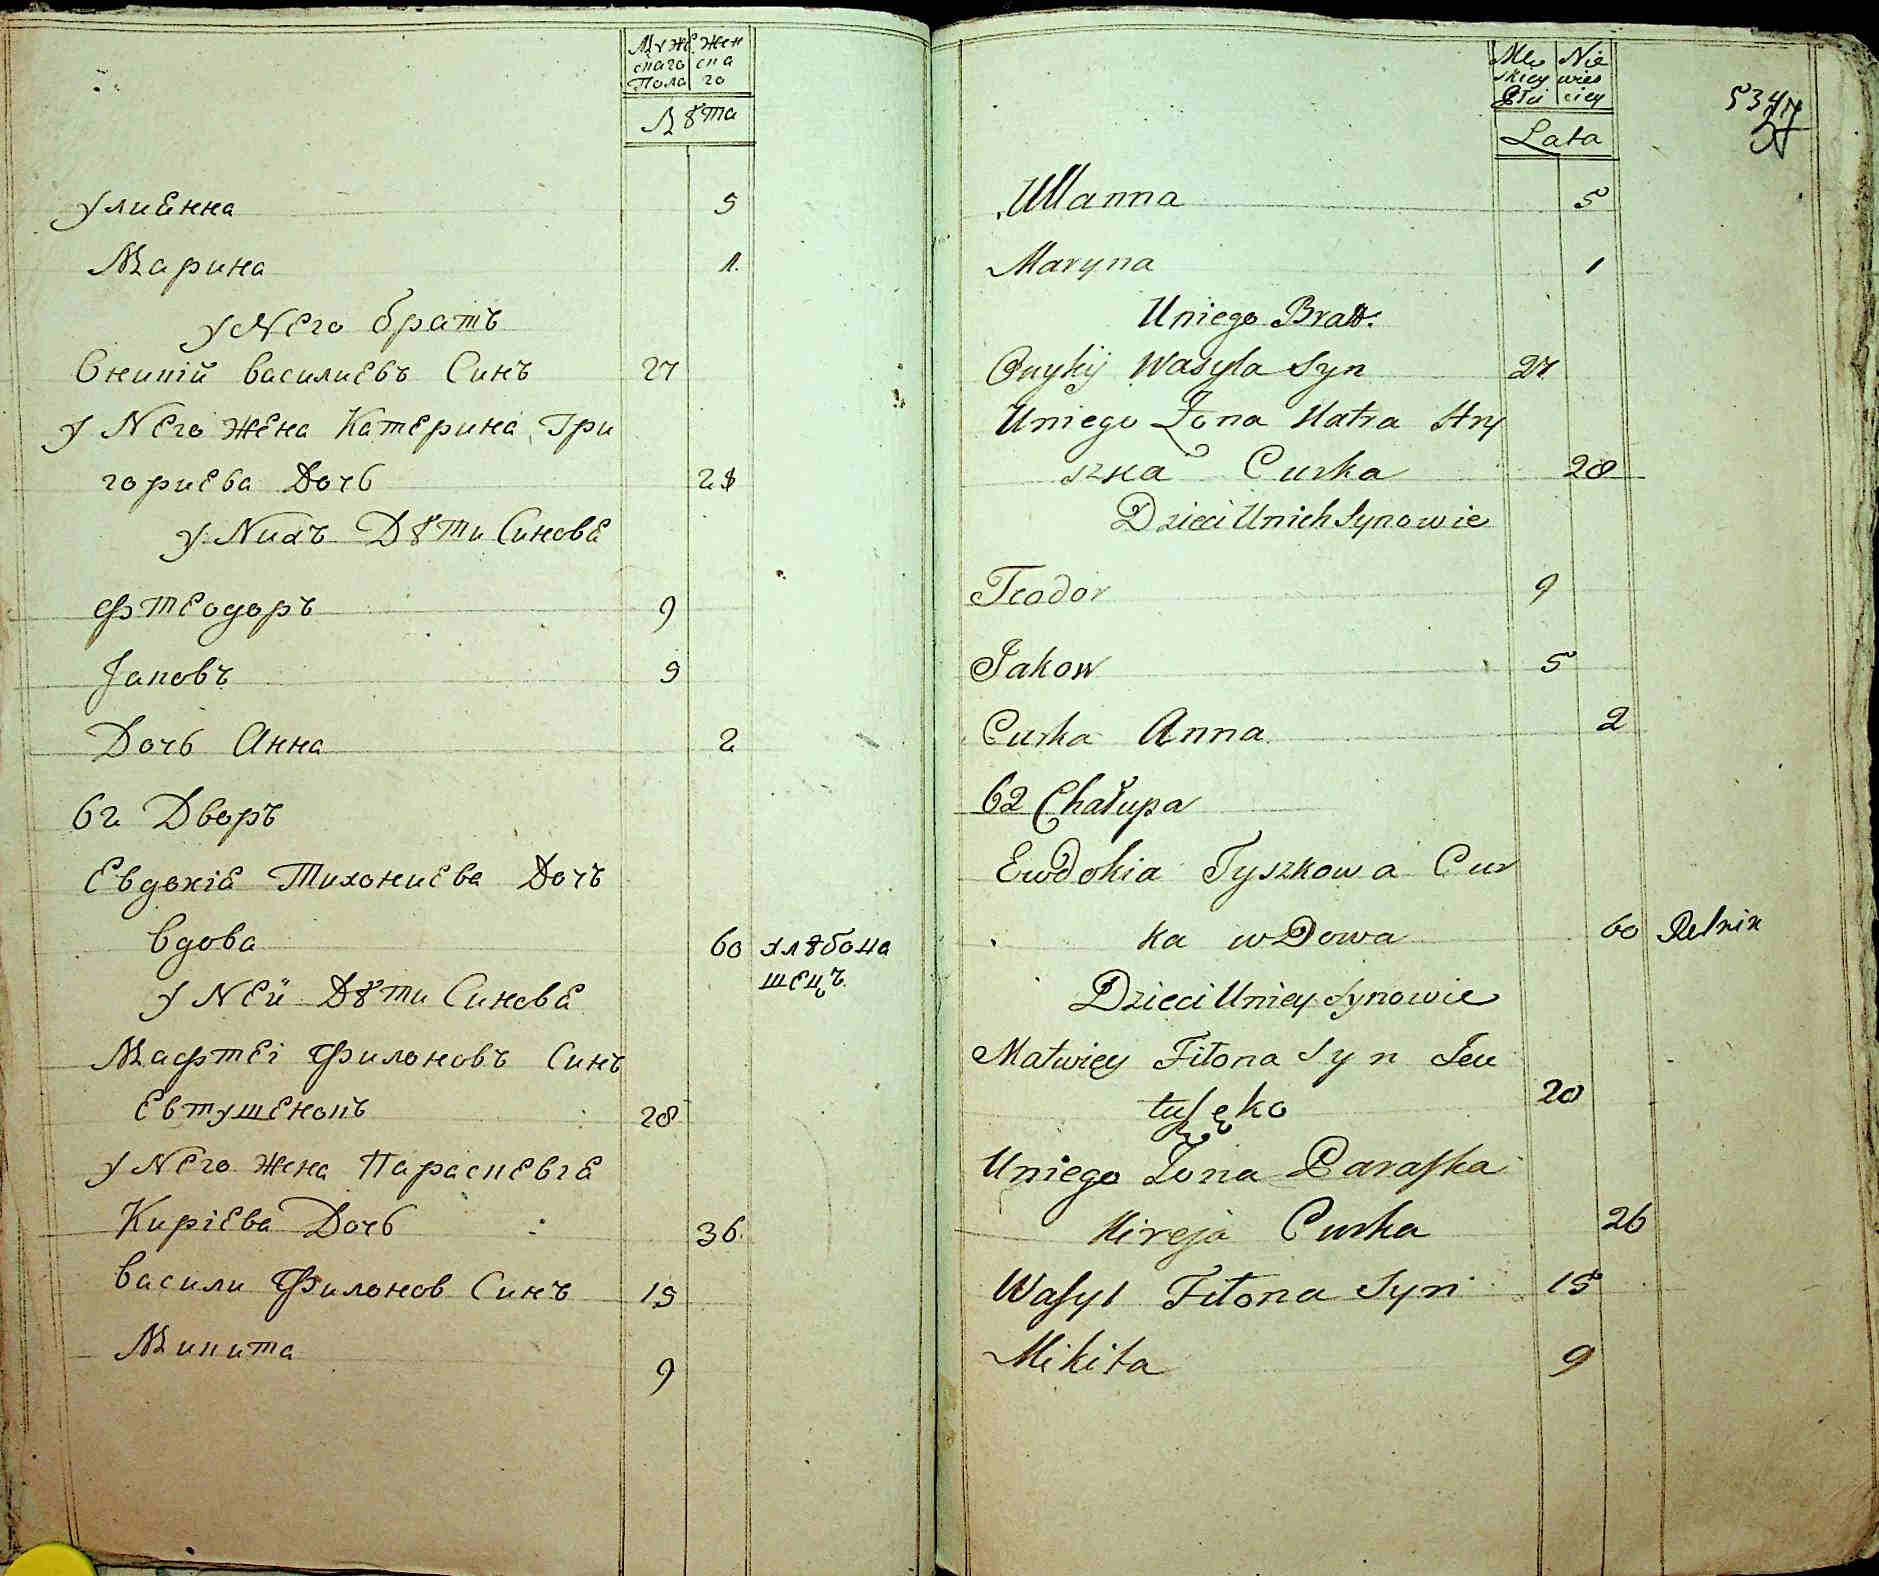 Мужe Жен
скаго ска
Пола го
Лѣта
Улиенна 5
Марина 1.
у Него братъ
Оникій василиевъ Синъ 27
у Него жена Катерина Гри
гориева Дочь 28
у Нихъ Дѣти Синове
Фтеодоръ 9
Іаковъ 5
Дочь Анна 2
62 Дворъ
Евдокіе Тихониева Дочъ
вдова 60 хлѣбопа
шецъ.
у Ней Дѣти Синове
Мафтеі Филоновъ Синъ
Евтушенокъ 28
у Него жена Параскевіе
Киріева Дочь 36
васили Филонов Синъ 15
Микита 9
Mę Nie
skiey wies
Płci ciey
Lata
534
Ullanna 5
Maryna 1
Uniego Brat.
Onykij Wasyla Syn 27
Uniego Żona Katra Hry
szka Curka 28
Dzieci Unich Synowie
Teodor 9
Jakow 5
Curka Anna 2
62 Chałupa
Ewdokia Tyszkowa Cur
ka wdowa 60 Rolnik
Dzieci Uniey Synowie
Matwiey Fiłona Syn Jeu
tuszęko 20
Uniego Żona Paraska
Kireja Curka 26
Wasyl Fiłona Syn 15
Mikita 9